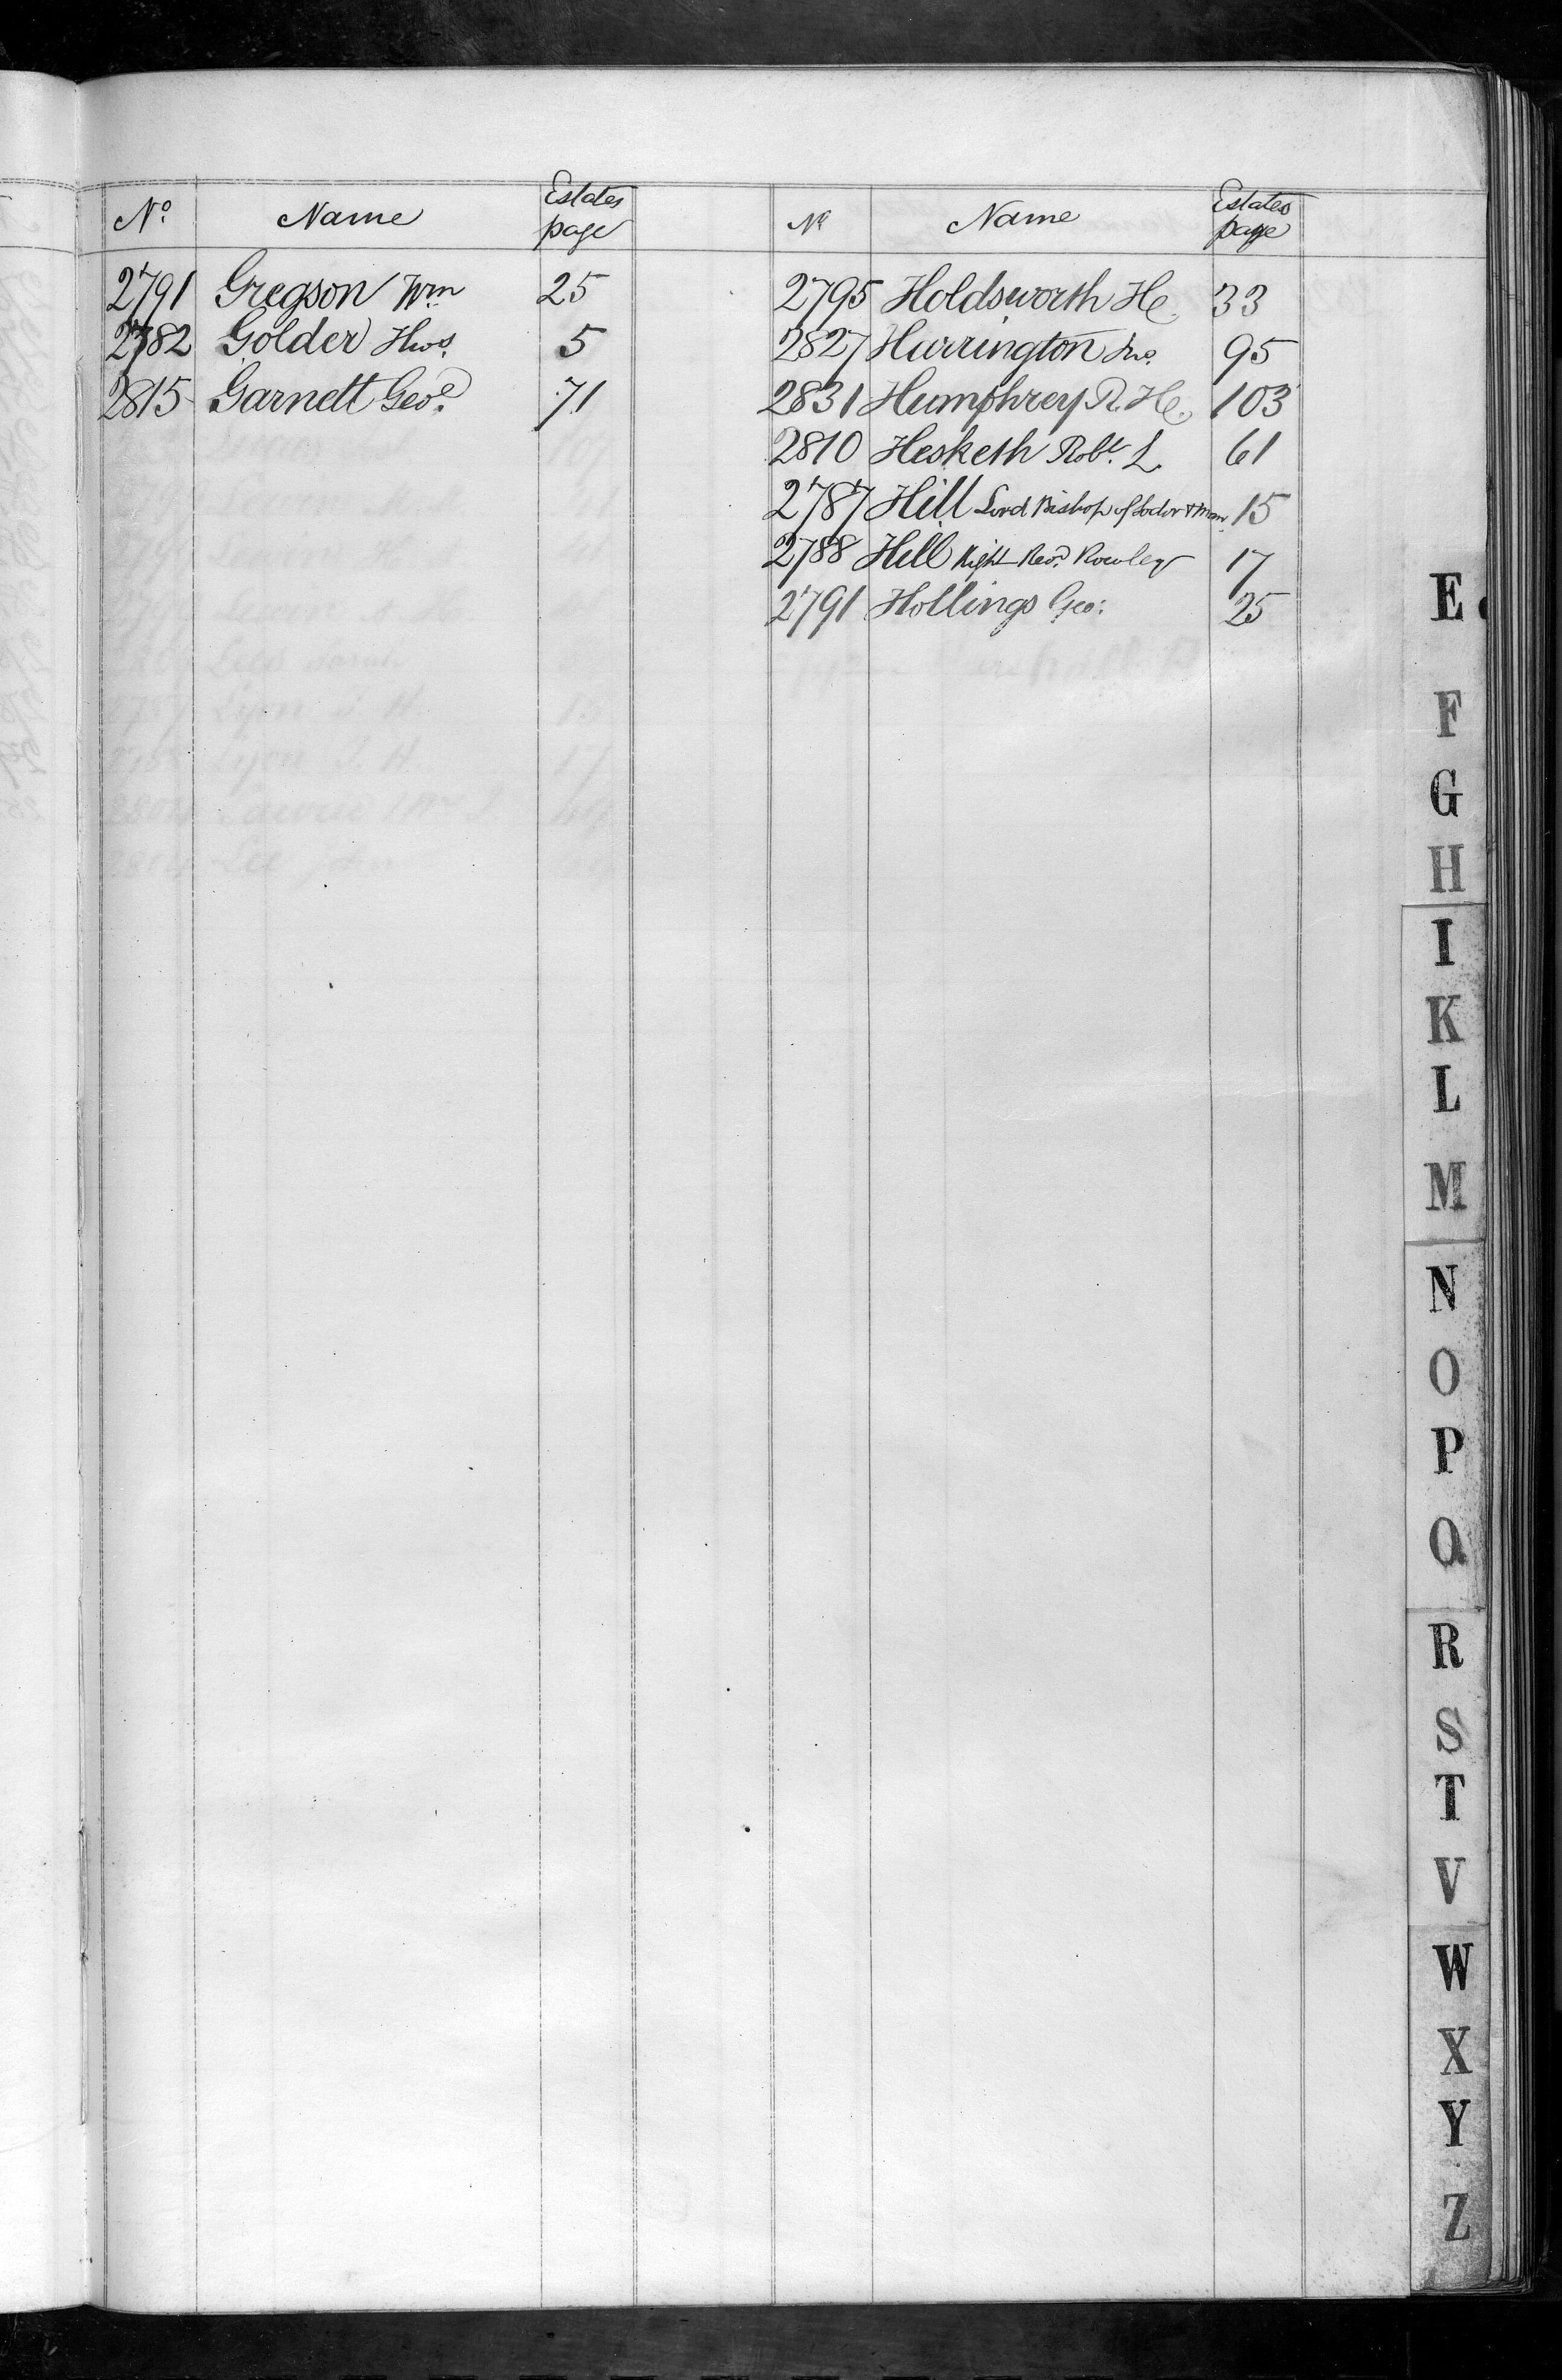 Nº Name Estates page
2791 Gregson Wm 25
2782 Golder Thos. 5
2815 Garnett Geo. 71
Nº Name Estates page
2795 Holdsworth H. 33
2827 Harrington Jno. 95
2831 Humphrey R. H. 103
2810 Hesketh Robt. L. 61
2787 Hill Lord Bishop of Sodor & Man 15
2788 Hill Right Revd. Rowley 17
2791 Hollings Geo: 25
E
F
G
H
I
K
L
M
N
O
P
Q
R
S
T
V
W
X
Y
Z